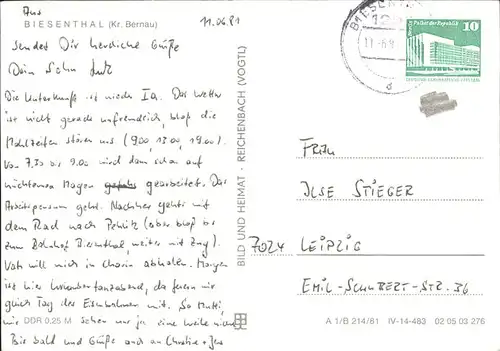 Aus
BIESENTHAL (Kr. Bernau) 11.06.81
sendet Dir herzliche Grüße
Dein Sohn Lutz
Die Unterkunft ist wieder Ia. Das Wetter
ist nicht gerade unfreundlich, bloß die
Mahlzeiten stören uns (9.00, 13.00, 19.00).
Von 7.30 bis 9.00 wird dann schon auf
nüchternen Magen gearbeitet. Das
Arbeitspensum geht. Nachher gehts mit
dem Rad nach (aber bloß bis
zum Bahnhof Biesenthal, weiter mit Zug).
Vati will mich in Chorin abholen. Morgen
ist hier, da feiern wir
gleich Tag des Eisenbahners mit. So Mutti,
wir sehen uns ja eine Weile nicht
Bis bald und Grüße auch an Christine + Jens
DDR 0,25 M
BILD UND HEIMAT · REICHENBACH (VOGTL)
BIESENTHAL
11.-6.8
d
Berlin, Palast der Republik
10
DEUTSCHE DEMOKRATISCHE REPUBLIK
FRAU
ILSE STIEGER
7024 LEIPZIG
EMIL-SCHUBERT-STR. 36
A 1/B 214/81 IV-14-483 02 05 03 276